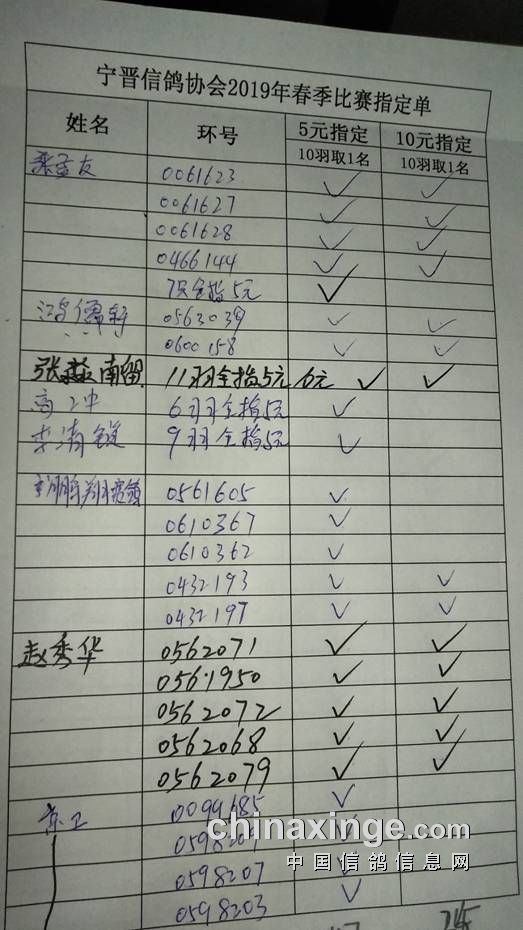 宁晋信鸽协会2019年春季比赛指定单
姓名 环号 5元指定 10元指定
10羽取1名 10羽取1名
张孟友 0061623 ✓ ✓
0061627 ✓ ✓
0061628 ✓ ✓
0466144 ✓ ✓
7只全指5元 ✓
0563039 ✓ ✓
0600158 ✓ ✓
南留 11羽全指5元 ✓ ✓
6羽全指5元 ✓
李清 9羽全指5元 ✓
0561605 ✓
0610367 ✓
0610362 ✓
0432193 ✓ ✓
0432197 ✓ ✓
赵秀华 0562071 ✓ ✓
0561950 ✓ ✓
0562072 ✓ ✓
0562068 ✓ ✓
0562079 ✓ ✓
0094685 ✓
chinaxinge.com
中国信鸽信息网
0598207 ✓
0598203 ✓